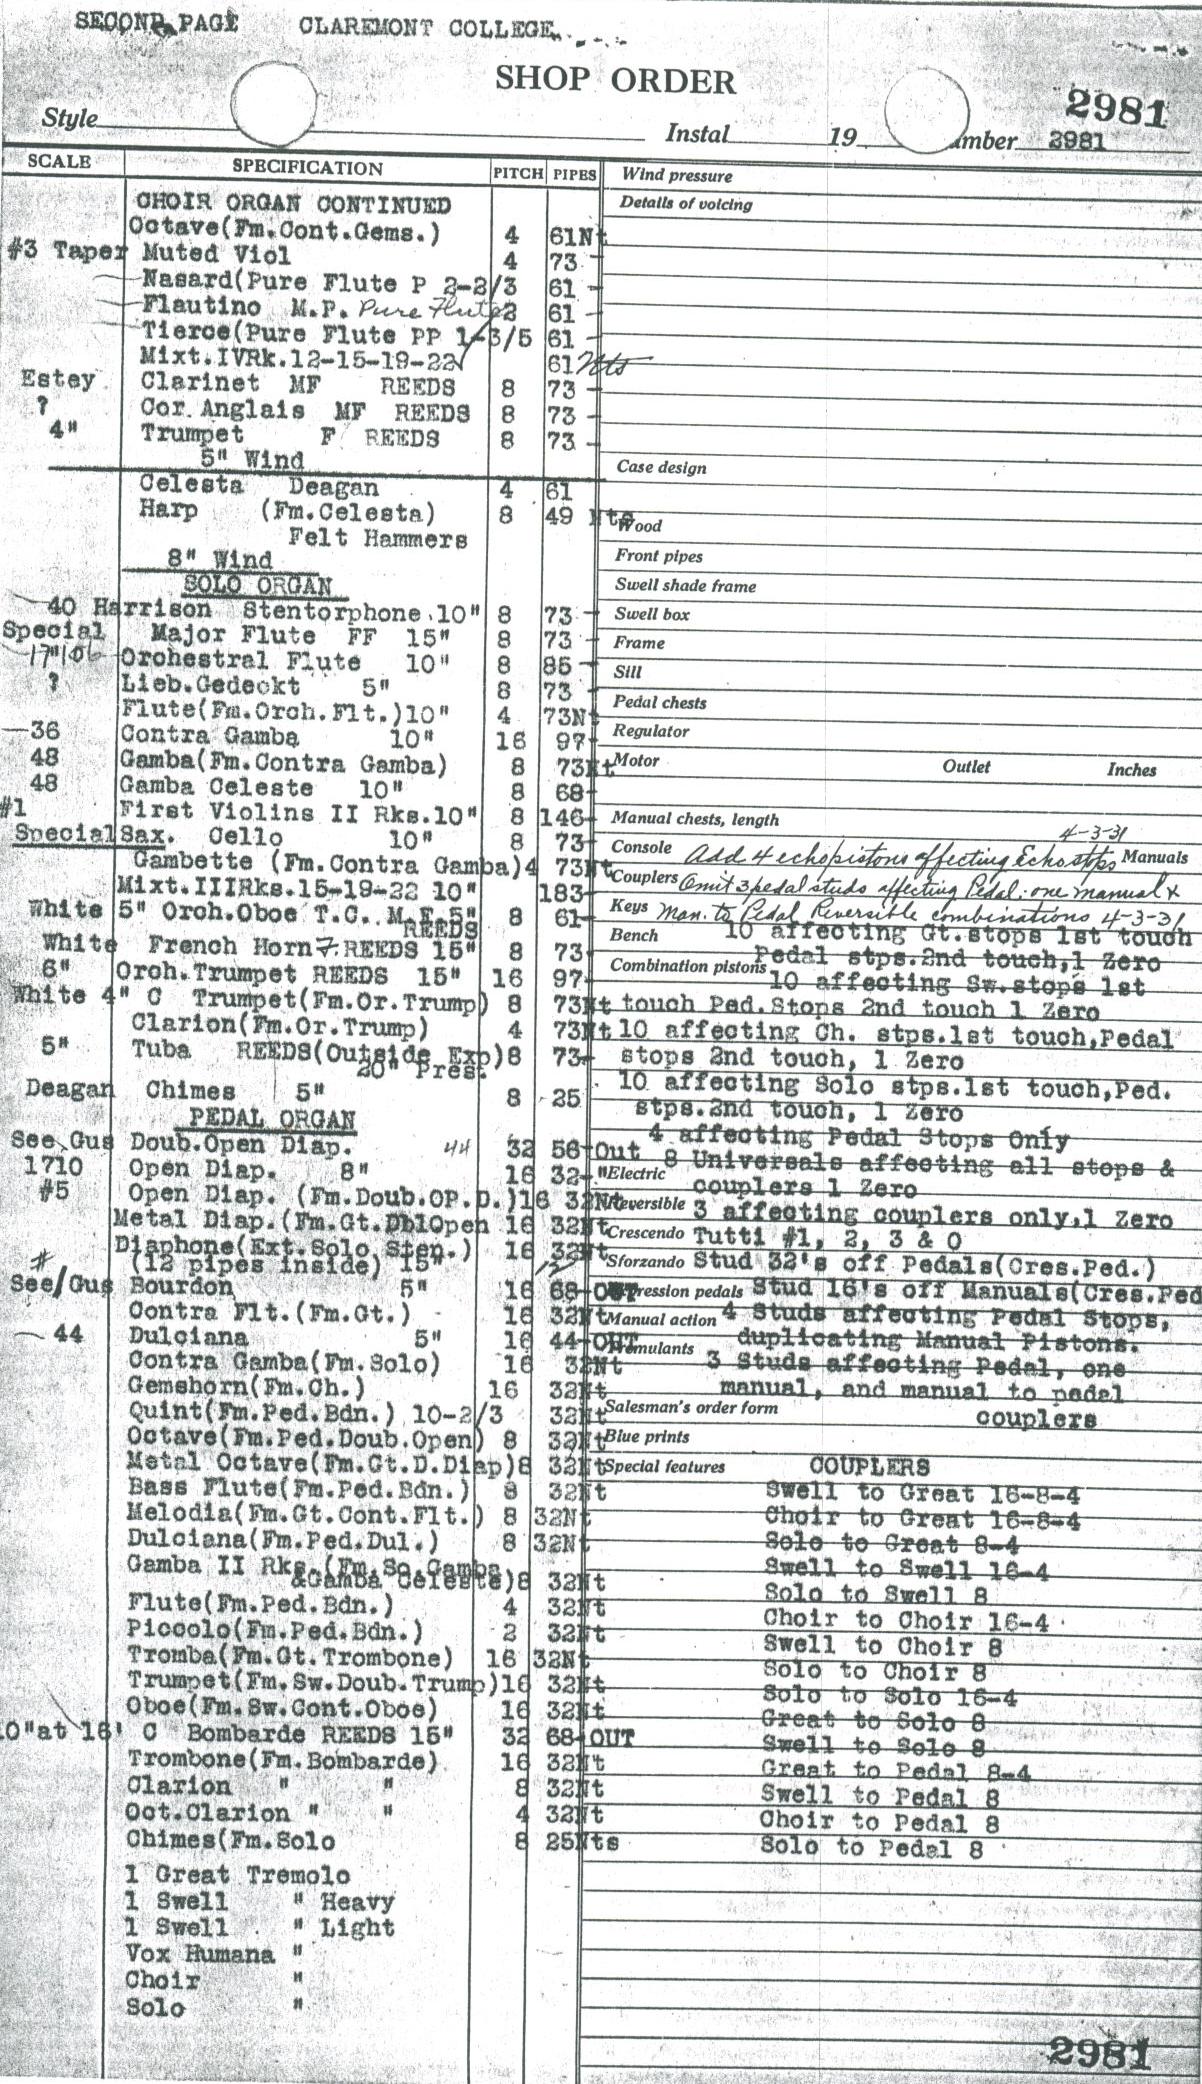 SECOND PAGE CLAREMONT COLLEGE
SHOP ORDER
2981
Style Instal 19 umber 2981
SCALE SPECIFICATION PITCH PIPES
CHOIR ORGAN CONTINUED
Octave(Fm.Cont.Gems.) 4 61Nt
#3 Taper Muted Viol 4 73
Nasard(Pure Flute P 2-2/3 61
Flautino M.P. Pure Flute 2 61
Tierce(Pure Flute PP 1-3/5 61
Mixt.IVRk.12-15-19-22 61 Nts
Estey Clarinet MF REEDS 8 73
? Cor Anglais MF REEDS 8 73
4" Trumpet F REEDS 8 73
5" Wind
Celesta Deagan 4 61
Harp (Fm.Celesta) 8 49 Nts
Felt Hammers
8" Wind
SOLO ORGAN
40 Harrison Stentorphone 10" 8 73
Special Major Flute FF 15" 8 73
17"106 Orchestral Flute 10" 8 85
? Lieb.Gedeckt 5" 8 73
Flute(Fm.Orch.Flt.)10" 4 73Nt
36 Contra Gamba 10" 16 97
48 Gamba(Fm.Contra Gamba) 8 73Nt
48 Gamba Celeste 10" 8 68
#1 First Violins II Rks.10" 8 146
Special Sax. Cello 10" 8 73
Gambette (Fm.Contra Gamba)4 73Nt
Mixt.IIIRks.15-19-22 10" 183
White 5" Orch.Oboe T.C. M.F.5" 8 61
REEDS
White French Horn F REEDS 15" 8 73
6" Orch.Trumpet REEDS 15" 16 97
White 4" C Trumpet(Fm.Or.Trump) 8 73Nt
Clarion(Fm.Or.Trump) 4 73Nt
5" Tuba REEDS(Outside Exp)8 73
20" Pres.
Deagan Chimes 5" 8 25
PEDAL ORGAN
See Gus Doub.Open Diap. 44 32 56 Out
1710 Open Diap. 8" 16 32 "
#5 Open Diap. (Fm.Doub.OP.D.)16 32Nt
Metal Diap.(Fm.Gt.DblOpen 16 32Nt
Diaphone(Ext.Solo Sten.) 16 32Nt
# (12 pipes inside) 15" 12
See/Gus Bourdon 5" 16 68 OUT
Contra Flt.(Fm.Gt.) 16 32Nt
44 Dulciana 5" 16 44 OUT
Contra Gamba(Fm.Solo) 16 32Nt
Gemshorn(Fm.Ch.) 16 32Nt
Quint(Fm.Ped.Bdn.) 10-2/3 32Nt
Octave(Fm.Ped.Doub.Open) 8 32Nt
Metal Octave(Fm.Gt.D.Diap)8 32Nt
Bass Flute(Fm.Ped.Bdn.) 8 32Nt
Melodia(Fm.Gt.Cont.Flt.) 8 32Nt
Dulciana(Fm.Ped.Dul.) 8 32Nt
Gamba II Rks.(Fm.So.Gamba
&Gamba Celeste)8 32Nt
Flute(Fm.Ped.Bdn.) 4 32Nt
Piccolo(Fm.Ped.Bdn.) 2 32Nt
Tromba(Fm.Gt.Trombone) 16 32Nt
Trumpet(Fm.Sw.Doub.Trump)16 32Nt
Oboe(Fm.Sw.Cont.Oboe) 16 32Nt
10"at 16' C Bombarde REEDS 15" 32 68 OUT
Trombone(Fm.Bombarde) 16 32Nt
Clarion " " 8 32Nt
Oct.Clarion " " 4 32Nt
Chimes(Fm.Solo 8 25Nts
1 Great Tremolo
1 Swell " Heavy
1 Swell " Light
Vox Humana "
Choir "
Solo "
Wind pressure
Details of voicing
Case design
Wood
Front pipes
Swell shade frame
Swell box
Frame
Sill
Pedal chests
Regulator
Motor Outlet Inches
Manual chests, length
4-3-31
Console Add 4 echo pistons affecting Echo stops Manuals
Couplers Omit 3 pedal studs affecting Pedal. one manual &
Keys Man. to Pedal Reversible combinations 4-3-31
Bench 10 affecting Gt.stops 1st touch
Pedal stps.2nd touch,1 Zero
Combination pistons 10 affecting Sw.stops 1st
touch Ped.Stops 2nd touch 1 Zero
10 affecting Ch. stps.1st touch,Pedal
stops 2nd touch, 1 Zero
10 affecting Solo stps.1st touch,Ped.
stps.2nd touch, 1 Zero
4 affecting Pedal Stops Only
8 Universals affecting all stops &
Electric couplers 1 Zero
Reversible 3 affecting couplers only,1 Zero
Crescendo Tutti #1, 2, 3 & 0
Sforzando Stud 32's off Pedals(Cres.Ped.)
ression pedals Stud 16's off Manuals(Cres.Ped
Manual action 4 Studs affecting Pedal Stops,
duplicating Manual Pistons.
Tremulants 3 Studs affecting Pedal, one
manual, and manual to pedal
Salesman's order form couplers
Blue prints
Special features COUPLERS
Swell to Great 16-8-4
Choir to Great 16-8-4
Solo to Great 8-4
Swell to Swell 16-4
Solo to Swell 8
Choir to Choir 16-4
Swell to Choir 8
Solo to Choir 8
Solo to Solo 16-4
Great to Solo 8
Swell to Solo 8
Great to Pedal 8-4
Swell to Pedal 8
Choir to Pedal 8
Solo to Pedal 8
2981